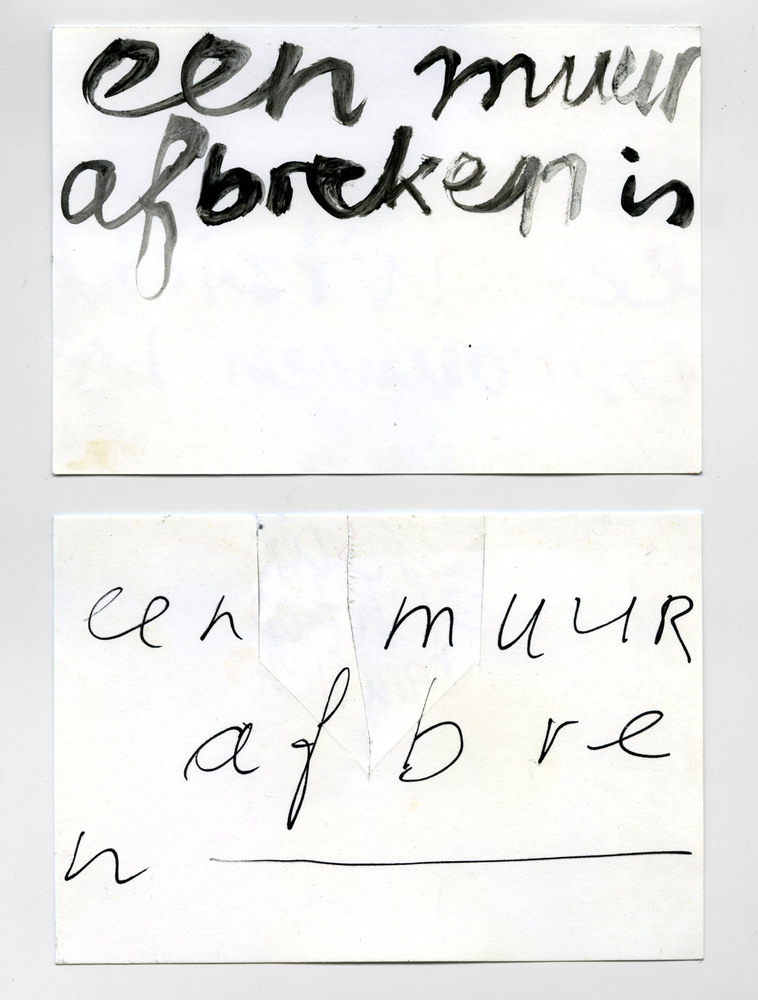 een muur
afbreken is
een muuR
af bre
n